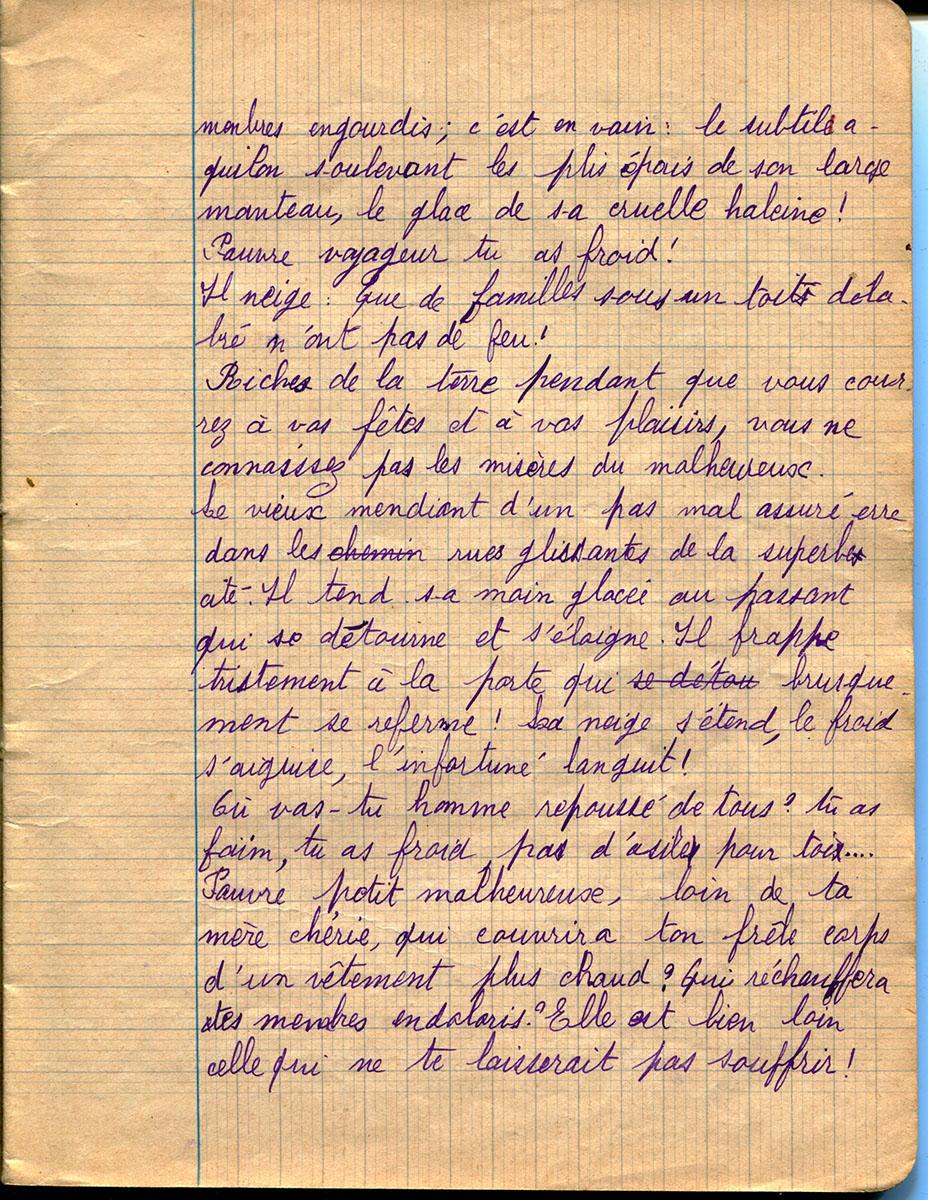 membres engourdis ; c'est en vain : le subtil a-
quilon soulevant les plis épais de son large
manteau, le glace de sa cruelle haleine !
Pauvre voyageur tu as froid !
Il neige : Que de familles sous un toit déla-
bré n'ont pas de feu !
Riches de la terre pendant que vous cour-
rez à vos fêtes et à vos plaisirs, vous ne
connaissez pas les misères du malheureux.
Le vieux mendiant d'un pas mal assuré erre
dans les chemin rues glissantes de la superbe
cité. Il tend sa main glacée au passant
qui se détourne et s'éloigne. Il frappe
tristement à la porte qui se détou brusque-
ment se referme ! La neige s'étend, le froid
s'aiguise, l'infortuné languit !
Où vas-tu homme repoussé de tous ? tu as
faim, tu as froid, pas d'asile pour toi....
Pauvre petit malheureux, loin de ta
mère chérie, qui couvrira ton frêle corps
d'un vêtement plus chaud ? Qui réchauffera
tes menbres endoloris ? Elle est bien loin
celle qui ne te laisserait pas souffrir !